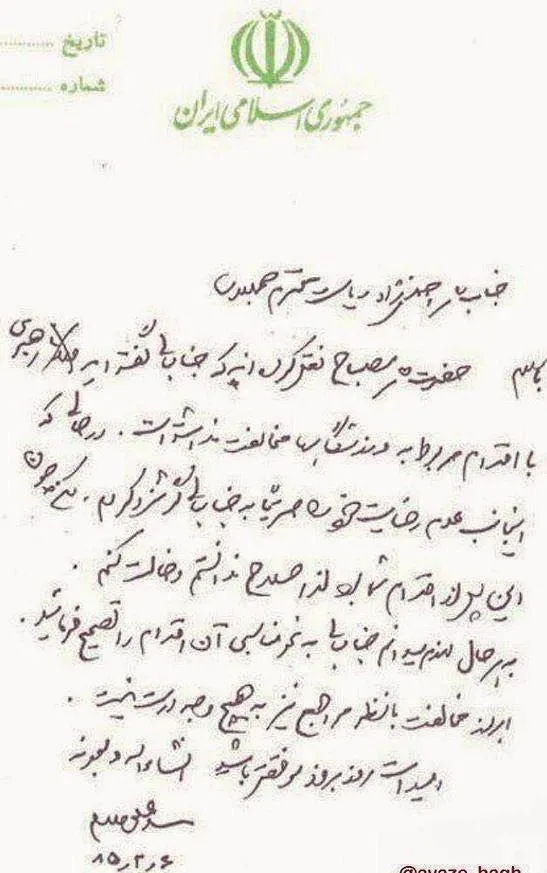 تاریخ ..........
شماره ..........
جمهوری اسلامی ایران
جناب آقای احمدی‌نژاد ریاست محترم جمهوری
با سلام حضرت آقای مصباح نقل کردند که جنابعالی گفته‌اید رهبری
با اقدام مربوط به ورزشگاهها مخالفت نداشته است . در حالی که
اینجانب عدم رضایت خود را صریحا به جنابعالی گوشزد کردم . لکن چون
این پس از اقدام شما بود لذا صلاح ندانستم دخالت کنم .
به هر حال لازم میدانم جنابعالی به نحو مناسبی آن اقدام را تصحیح فرمائید .
ابراز مخالفت با نظر مراجع نیز به هیچ وجه درست نیست .
امید است روز بروز موفقتر باشید انشاءالله
سید علی
۸۵/۲/۶
@avaze_hagh